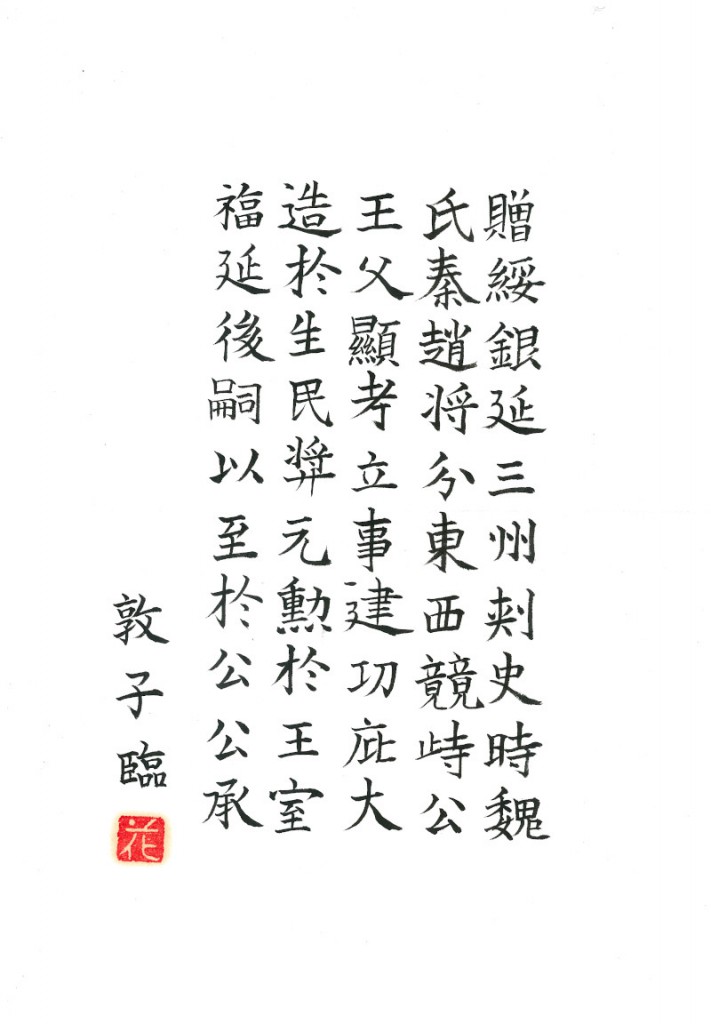 贈綏銀延三州刾史時魏
氏秦趙将分東西競峙公
王父顯考立事建功庇大
造於生民奬元勲於王室
福延後嗣以至於公公承
敦子臨
花